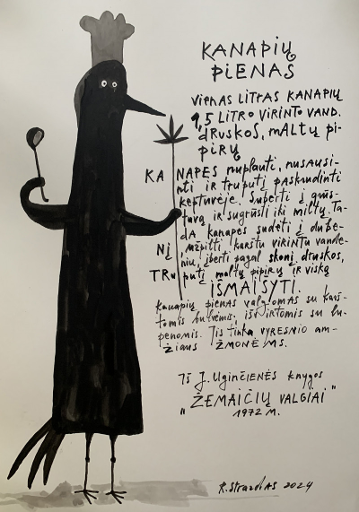 KANAPIŲ
PIENAS
VIENAS LITRAS KANAPIŲ
1,5 LITRO VIRINTO VAND.
DRUSKOS, MALTŲ PI-
PIRŲ
KANAPES nuplauti, nusausi-
nti ir truputį paskrudinti
keptuvėje. Suberti į grūs-
tuvą ir sugrūsti iki miltų. Ta-
da kanapes sudėti į dube-
NĮ užpilti karštu virintu vande-
niu, įberti pagal skonį druskos,
TRUPUTĮ maltų pipirų ir viską
IŠMAIŠYTI.
Kanapių pienas valgomas su karš-
tomis bulvėmis, išvirtomis su lu-
penomis. Jis tinka VYRESNIO am-
žiaus ŽMONĖMS.
Iš J. Uginčienės knygos
„ŽEMAIČIŲ VALGIAI"
1972 M.
R. Strazdas 2024